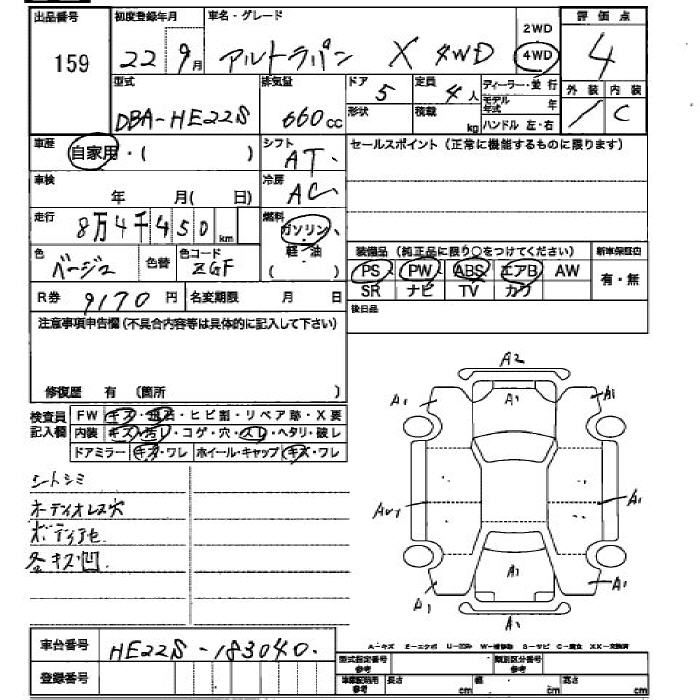 出品番号 初度登録年月 車名・グレード 2WD 評価点
159 22 9月 アルトラパン X 4WD 4WD 4
型式 排気量 ドア 5 定員 4人 ディーラー・並行 外装 内装
DBA-HE22S 660cc 形状 積載 kg モデル年式 年 C
ハンドル 左・右
車歴 自家用・( ) シフト AT セールスポイント (正常に機能するものに限ります)
車検 年 月( 日) 冷房 AC
走行 8万4千450km 燃料 ガソリン・軽・油 ( )
色 ベージュ 色替 色コード ZGF
装備品 (純正品に限り○をつけてください) 新車保証書
PS PW ABS エアB AW 有・無
SR ナビ TV カワ
R券 9170円 名変期限 月 日 後日品
注意事項申告欄(不具合内容等は具体的に記入して下さい)
修復歴 有 (箇所 )
検査員記入欄 FW キズ・飛石・ヒビ割・リペア跡・X要
内装 キズ・汚れ・コゲ・穴・スレ・ヘタリ・破レ
ドアミラー キズ・ワレ ホイール・キャップ キズ・ワレ
シートシミ
オーディオレス穴
ボディアセ
各キズ凹
A2
A1 A1 A1
A1
A1
A1 A1
A1
車台番号 HE22S-183040
登録番号
A-キズ E-エクボ U-凹み W-補修跡 S-サビ C-腐食 XX-交換済
型式指定番号 参考 類別区分番号 参考
車庫証明用 参考 長さ cm 幅 cm 高さ cm